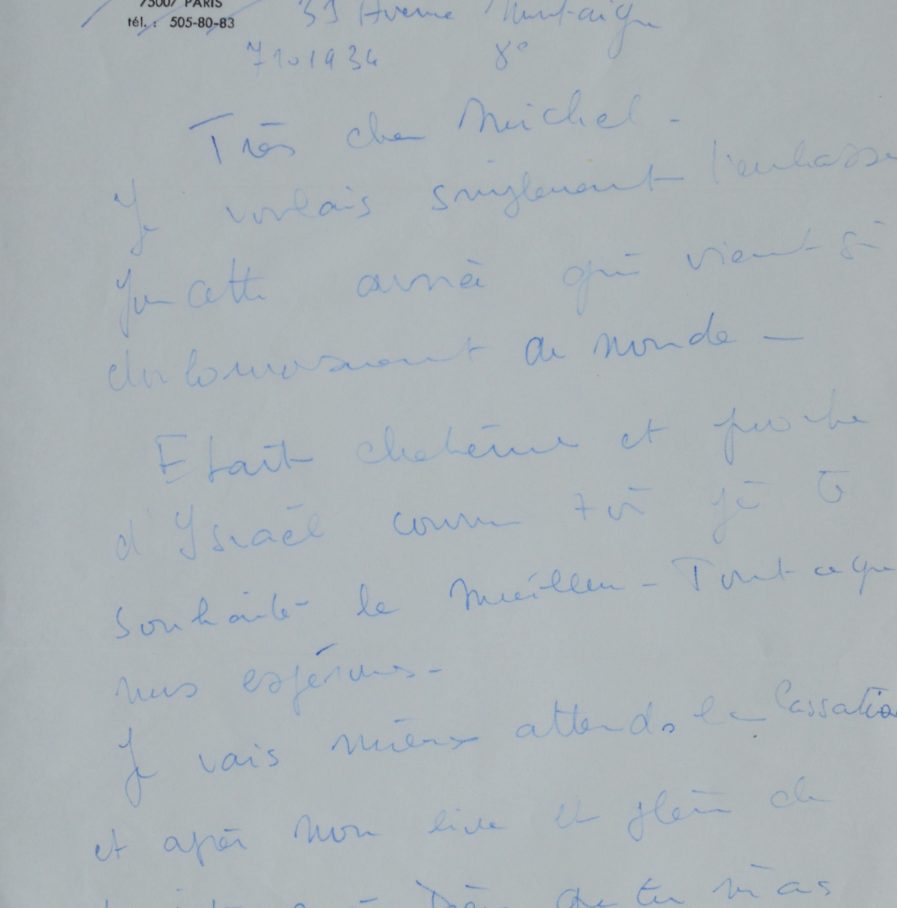 75007 PARIS
tél. : 505-80-83
33 Avenue Montaigne
8°
Très cher Michel -
Je voulais simplement t'embrasser
cette année qui vient si
de monde -
Etant chrétienne et proche
d'Israël comme toi je te
souhaite le meilleur - Tout ce que
nous espérons -
Je vais mieux attends la Cassation
et après mon livre et plein de
Dieu que tu m'as